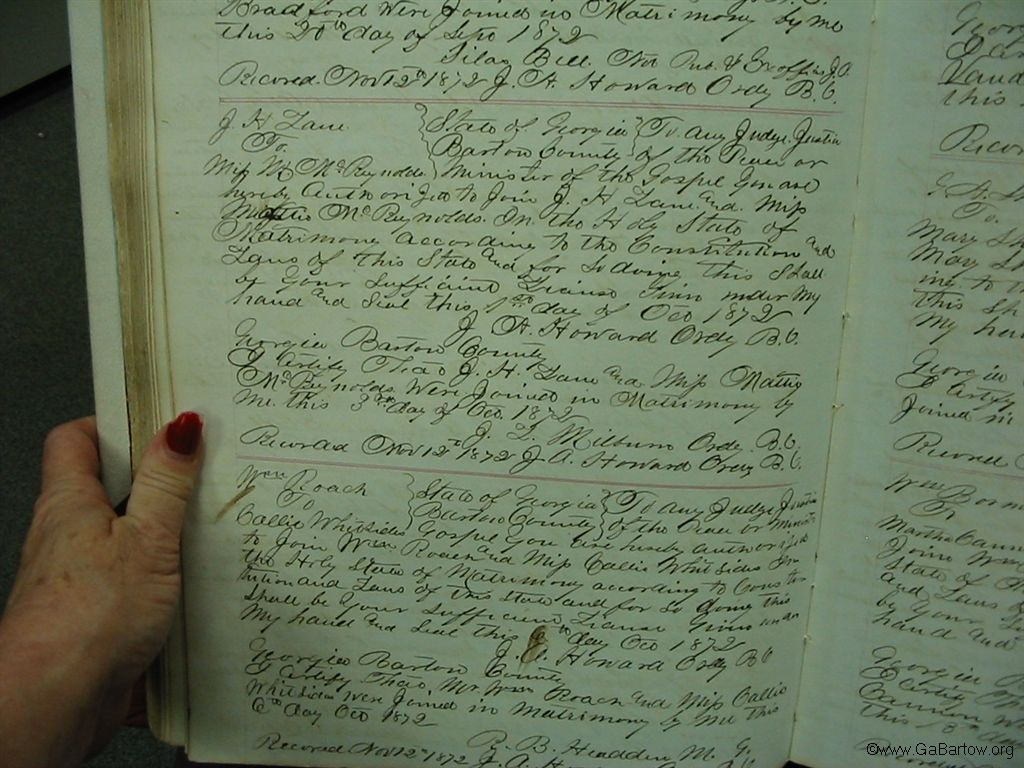 Bradford Were Joined in Matrimony by me
this 20th day of Sept 1872
Silas Bell Not Pub & Ex offi J.P.
Recored Nov 12th 1872 J. A. Howard Ordy B.C.
J H Lane
To
Miss M McReynolds
State of Georgia
Barton County
To any Judge Justice
of the Peace or
Minister of the Gospel You are
hereby Authorized to Join J. H Lane and Miss
Mattie McReynolds In the Holy State of
Matrimony according to the Constitution and
Laws of this State and for so doing this Shall
be Your Sufficient License Given under My
hand and Seal this 1st day of Oct 1872
J. A. Howard Ordy B.C.
Georgia Barton County
I Certify That J. H. Lane and Miss Mattie
McReynolds Were Joined in Matrimony by
me this 3rd day of Oct 1872
J. L. Milburn Ordo B.C.
Recorded Nov 12th 1872 J. A. Howard Ordy B.C.
Wm Roach
To
Callie Whitsides
State of Georgia
Barton County
To any Judge Justice
of the Peace or Minister
Gospel You are hereby authorized
to Join Wm Roach and Miss Callie Whitsides In
the Holy State of Matrimony according to Consti
tution and Laws of this State and for so doing this
Shall be Your Sufficient License Given under
My hand and Seal this day Oct 1872
J. A. Howard Ordy BC
Georgia Barton County
I Certify That Mr Wm Roach and Miss Callie
Whitsides Were Joined in Matrimony by me this
6th day Oct 1872
R. B. Headden M. G.
Recored Nov 12th 1872 J. A. H
Geor
this
Recor
To
Mary
May
ing to
this Sh
My han
Georgia
I Certify
Joined in
Recored
Wm
To
Martha Cann
Join Wm
State of
and Laws
by Your
hand and
Georgia
I Certify
Cannon
This
©www.GaBartow.org